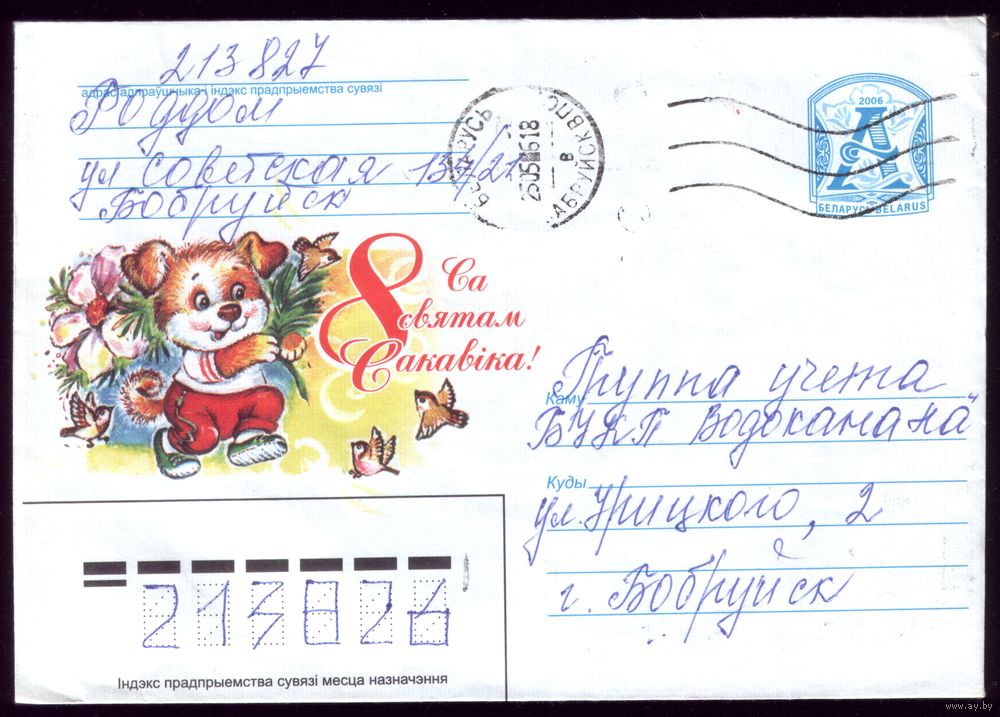 213827
адрас адпраўшчыка і індэкс прадпрыемства сувязі
Роддом
ул Советская 137/21
Бобруйск
БЕЛАРУСЬ
БАБРУЙСК ВПС
8
2006
А
БЕЛАРУСЬ BELARUS
8
Са
святам
Сакавіка!
Группа учета
Каму
БУКП Водоканала"
Куды
ул. Урицкого, 2
г. Бобруйск
213826
Індэкс прадпрыемства сувязі месца назначэння
www.ay.by